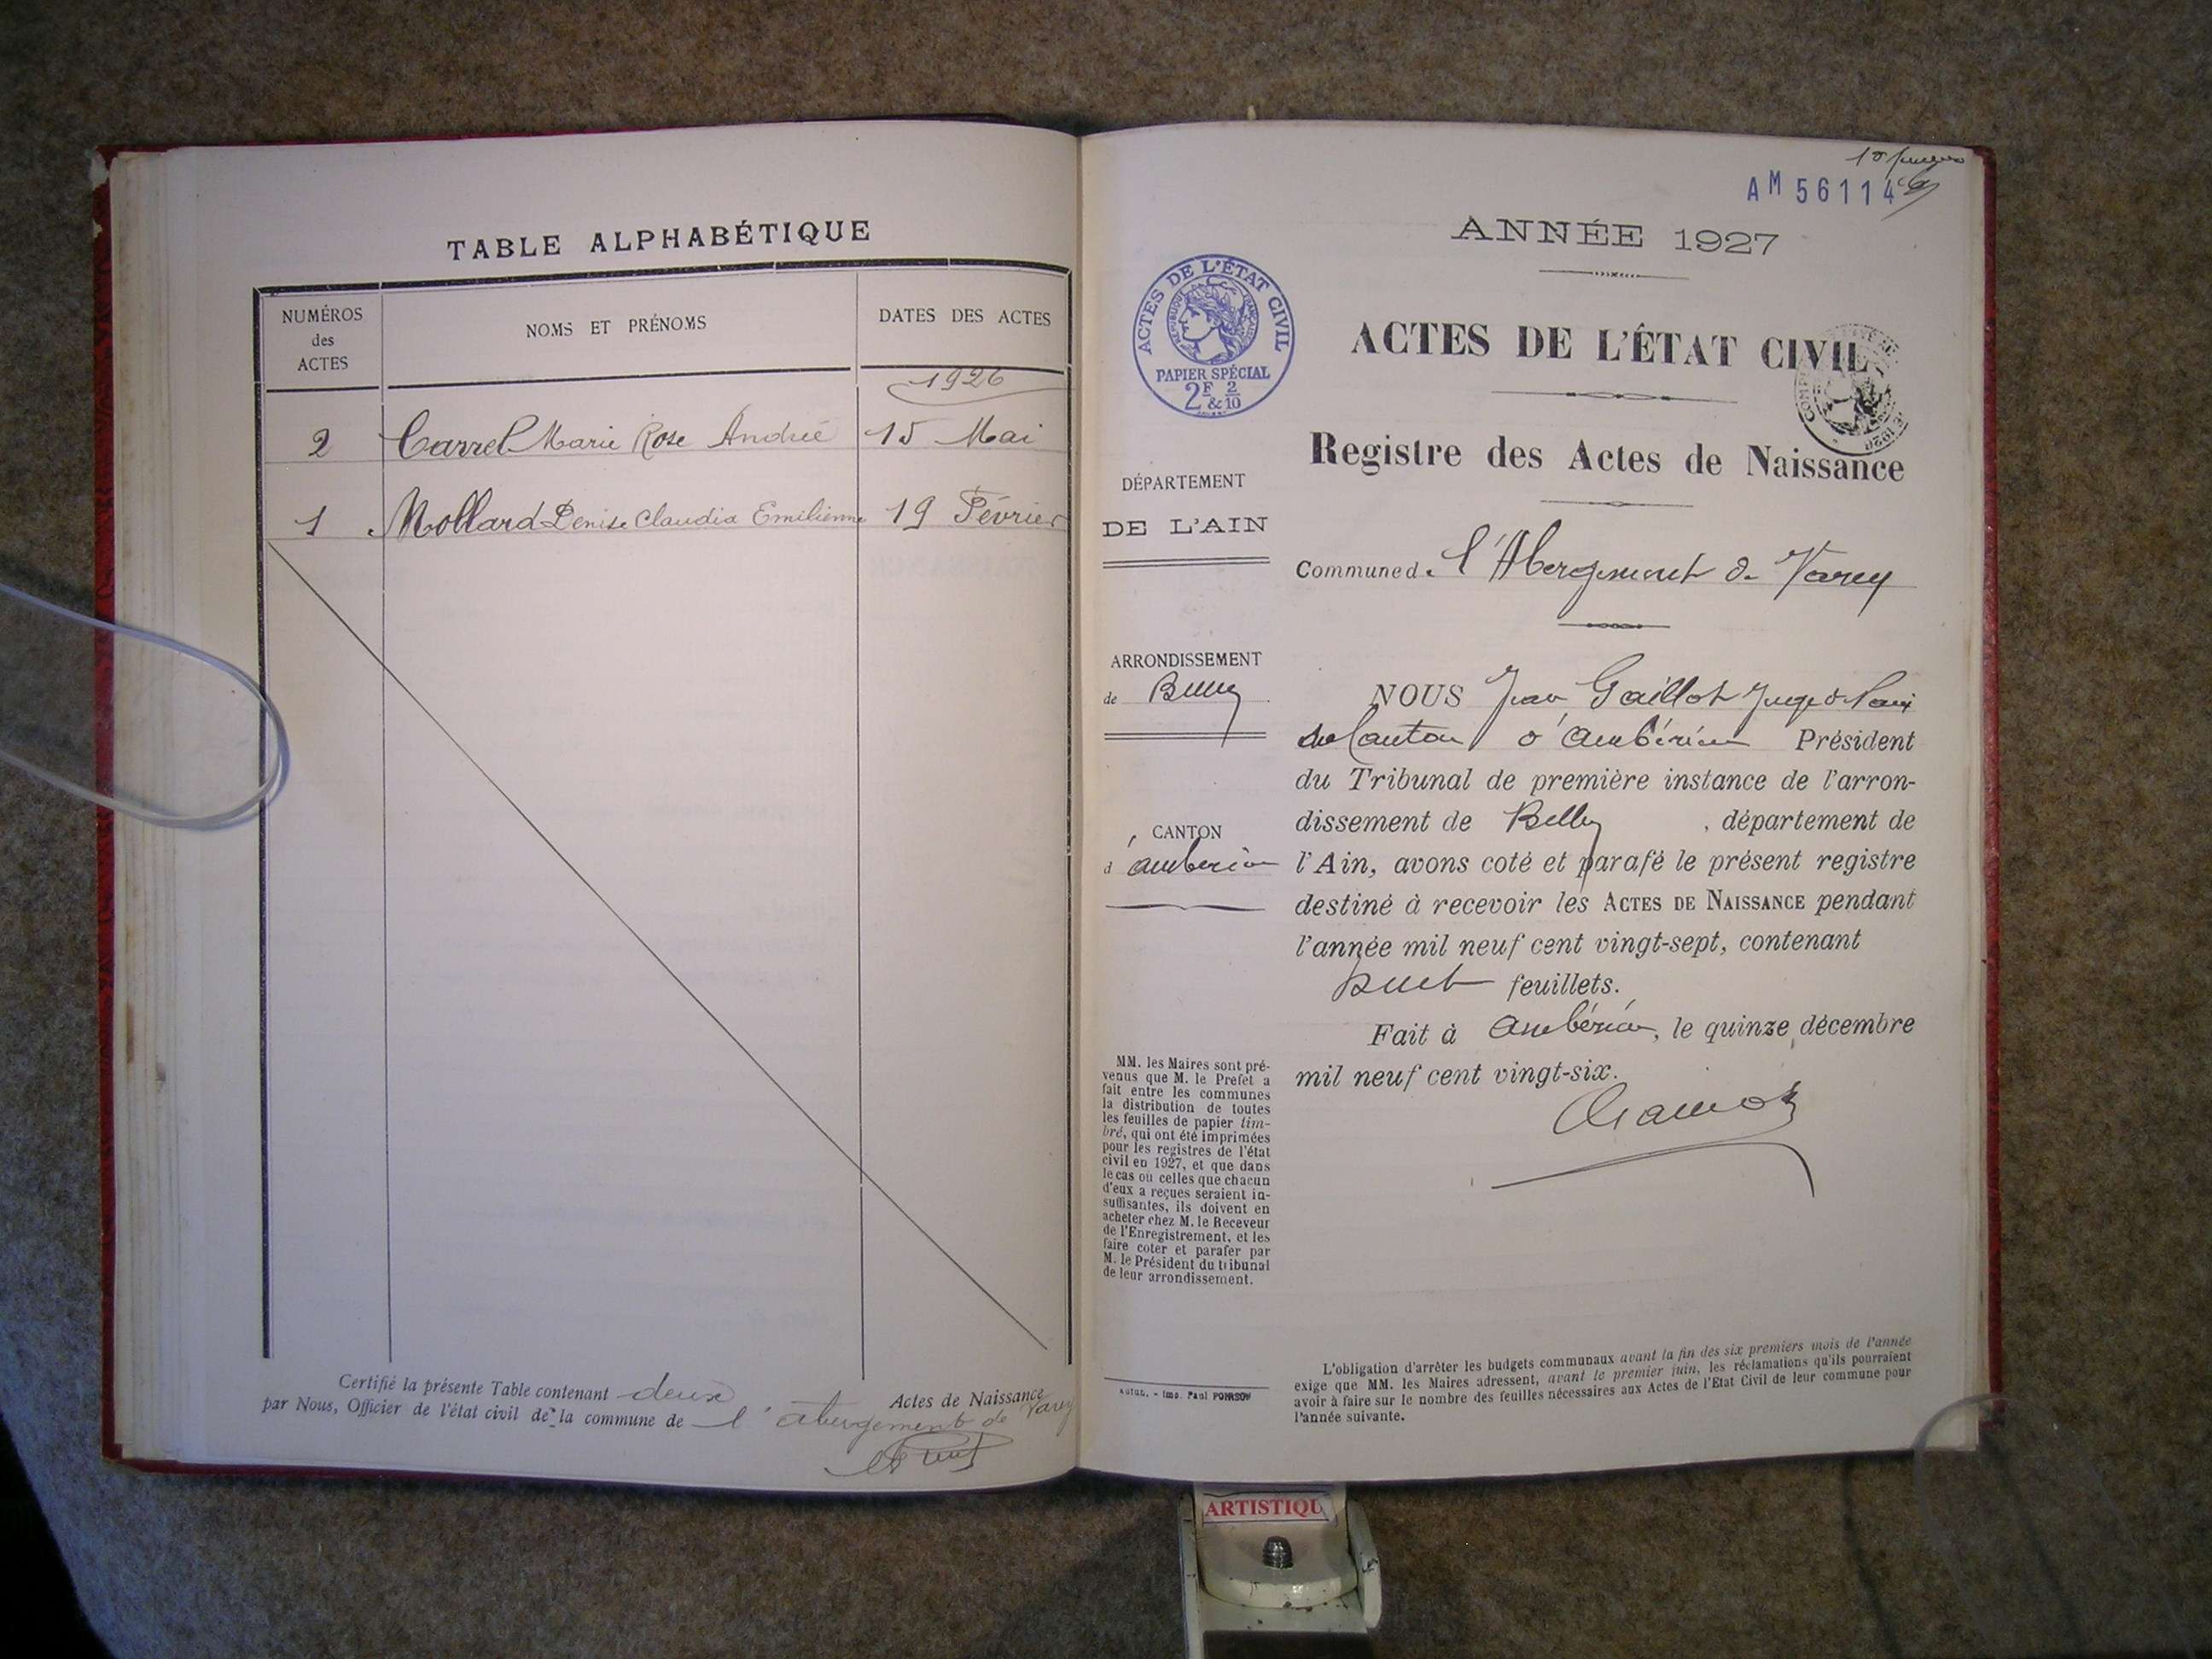 TABLE ALPHABÉTIQUE
NUMÉROS
des
ACTES
NOMS ET PRÉNOMS
DATES DES ACTES
1926
2 Carrel Marie Rose Andrée 15 Mai
1 Mollard Denise Claudia Emilienne 19 Février
Certifié la présente Table contenant deux Actes de Naissance
par Nous, Officier de l'état civil de la commune de l'abergement de Varey
AM 56114
ANNÉE 1927
ACTES DE L'ÉTAT CIVIL
RÉPUBLIQUE FRANÇAISE
PAPIER SPÉCIAL
2F 2
& 10
ACTES DE L'ÉTAT CIVIL
Registre des Actes de Naissance
DÉPARTEMENT
DE L'AIN
Commune d. l'Abergement de Varey
ARRONDISSEMENT
de Belley
CANTON
d'ambérieu
NOUS Jean Gaillot Juge de Paix
du Canton d'Ambérieu Président
du Tribunal de première instance de l'arron-
dissement de Belley, département de
l'Ain, avons coté et parafé le présent registre
destiné à recevoir les ACTES DE NAISSANCE pendant
l'année mil neuf cent vingt-sept, contenant
huit feuillets.
Fait à Ambérieu, le quinze décembre
mil neuf cent vingt-six.
MM. les Maires sont pré-
venus que M. le Prefet a
fait entre les communes
la distribution de toutes
les feuilles de papier tim-
bré, qui ont été imprimées
pour les registres de l'état
civil en 1927, et que dans
le cas où celles que chacun
d'eux a reçues seraient in-
suffisantes, ils doivent en
acheter chez M. le Receveur
de l'Enregistrement, et les
faire coter et parafer par
M. le Président du tribunal
de leur arrondissement.
Autun. - Imp. Paul
L'obligation d'arrêter les budgets communaux avant la fin des six premiers mois de l'année
exige que MM. les Maires adressent, avant le premier juin, les réclamations qu'ils pourraient
avoir à faire sur le nombre des feuilles nécessaires aux Actes de l'Etat Civil de leur commune pour
l'année suivante.
ARTISTIQU